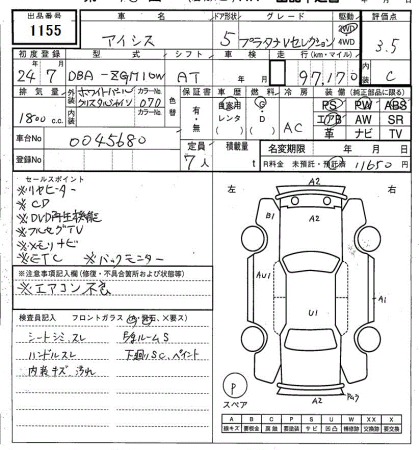 出品番号 車名 ドア形状 グレード 駆動 評価点
1155 アイシス 5 プラタナVセレクション 2WD 4WD 3.5
初度登録 型式 シフト 車検 走行(km・マイル) 内装
24年7月 DBA-ZGM10W AT 年 月 97,170 C
排気量 外装 ホワイトパール カラーNo. 色替 保証書 車歴 燃料 冷房 装備(純正部品に限る)
1800 c.c. クリスタルシャイン 070 有・無 自家用 G AC PS PW ABS
内装 カラーNo. レンタ D エアB AW SR
( ) ( ) 革 ナビ TV
車台No 0045680 定員 積載量 名変期限 年 月 日
登録No 7人 t R料金 未預託・預託済 11650 円
セールスポイント
※リヤヒーター
※CD
※DVD再生機能
※フルセグTV
※メモリナビ
※ETC ※バックモニター
※注意事項記入欄(修復・不具合箇所および状態等)
※エアコン不良
検査員記入 フロントガラス
シートシミ、スレ ルームS
ハンドルスレ 下廻りSC、ペイント
内装キズ 汚れ
左 右
A2
B1
A2
AU1
A1
U1
A2
P
スペア
A B C P S U W X XX
線キズ 要板金 腐蝕 要塗装 サビ 凹凸 補修跡 交換跡 要交換